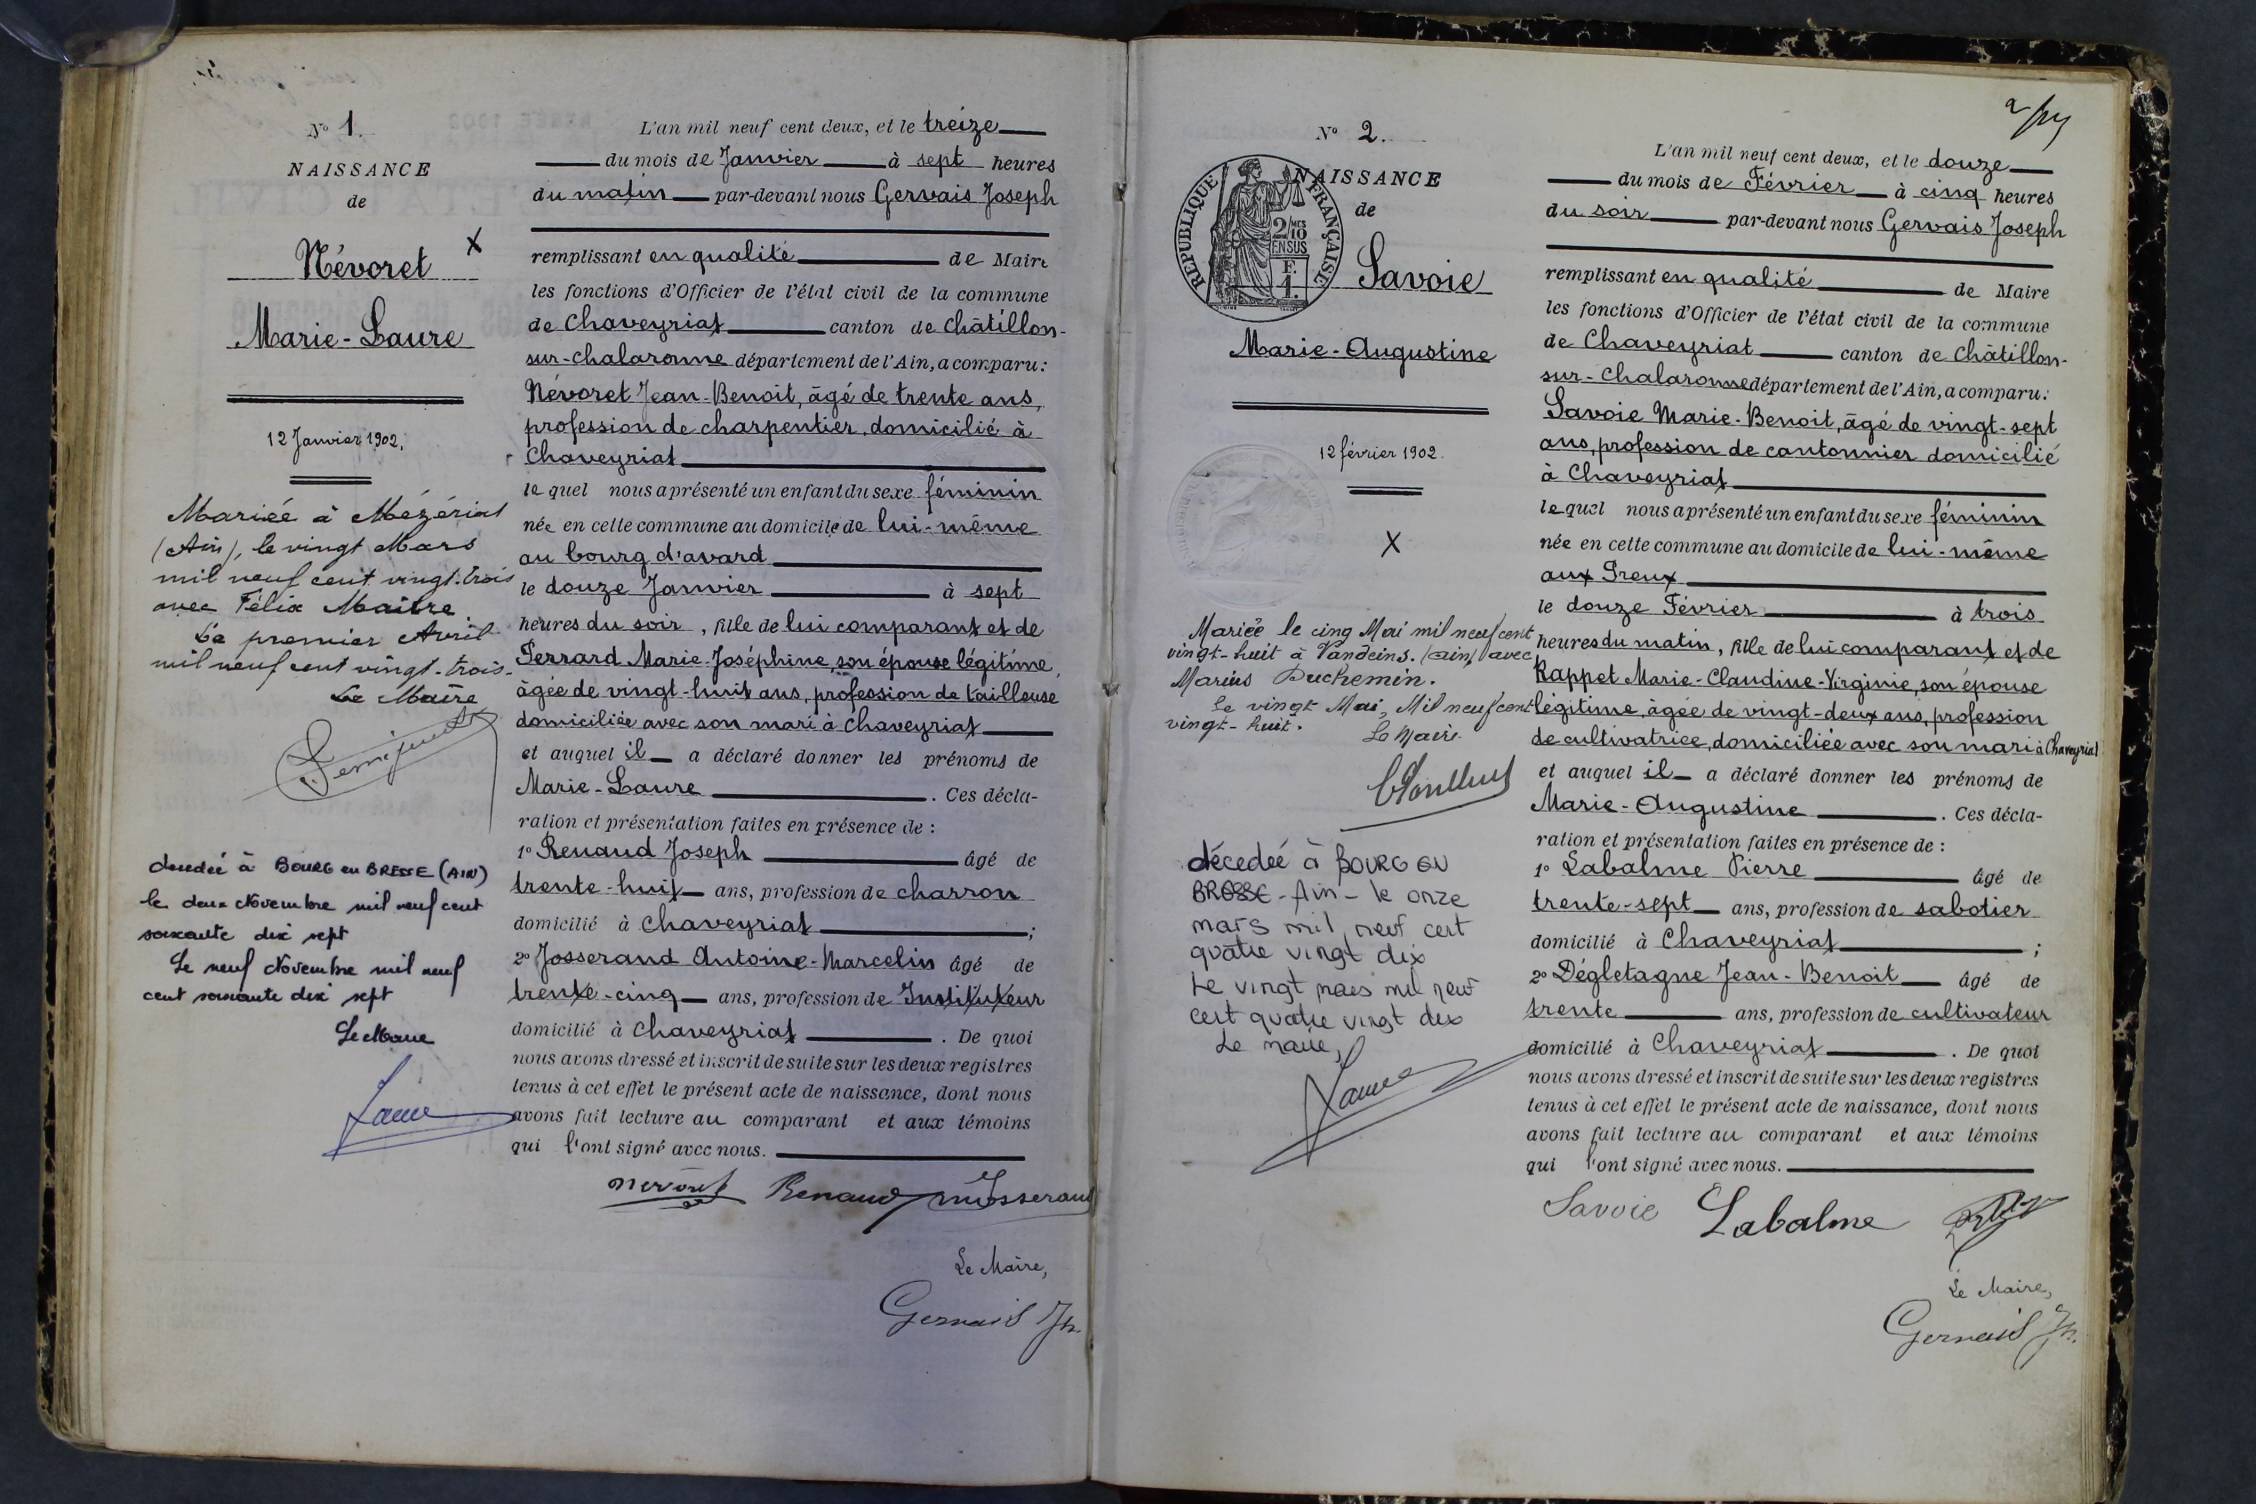 N° 1.
NAISSANCE
de
Névoret X
Marie-Laure
12 Janvier 1902.
Mariée à Mézériat
(Ain), le vingt Mars
mil neuf cent vingt-trois
avec Félix Maître
Le premier Avril
mil neuf cent vingt-trois.
Le Maire
décédée à BOURG en BRESSE (AIN)
le deux Novembre mil neuf cent
soixante dix sept
Le neuf Novembre mil neuf
cent soixante dix sept
Le Maire
L'an mil neuf cent deux, et le treize
du mois de Janvier à sept heures
du matin par-devant nous Gervais Joseph
remplissant en qualité de Maire
les fonctions d'Officier de l'état civil de la commune
de Chaveyriat canton de Châtillon-
sur-Chalaronne département de l'Ain, a comparu:
Névoret Jean-Benoit, âgé de trente ans,
profession de charpentier, domicilié à
Chaveyriat
lequel nous a présenté un enfant du sexe féminin
née en cette commune au domicile de lui-même
au bourg d'avard
le douze Janvier à sept
heures du soir, fille de lui comparant et de
Ferrard Marie-Joséphine, son épouse légitime,
âgée de vingt-huit ans, profession de tailleuse
domiciliée avec son mari à Chaveyriat
et auquel il a déclaré donner les prénoms de
Marie-Laure . Ces décla-
ration et présentation faites en présence de :
1° Renaud Joseph âgé de
trente-huit ans, profession de charron
domicilié à Chaveyriat ;
2° Josserand Antoine-Marcelin âgé de
trente-cinq ans, profession de Instituteur
domicilié à Chaveyriat . De quoi
nous avons dressé et inscrit de suite sur les deux registres
tenus à cet effet le présent acte de naissance, dont nous
avons fait lecture au comparant et aux témoins
qui l'ont signé avec nous.
Nevoret Renaud Josserand
Le Maire,
Gervais Jh.
2
N° 2.
NAISSANCE
de
REPUBLIQUE FRANÇAISE
2/10 EN SUS
F.
1.
Savoie
Marie-Augustine
12 février 1902.
X
Mariée le cinq Mai mil neuf cent
vingt-huit à Vandeins. (Ain) avec
Marius Duchemin.
Le vingt Mai, Mil neuf cent
vingt-huit.
Le Maire
décédée à BOURG EN
BRESSE - Ain - le onze
mars mil neuf cent
quatre vingt dix
Le vingt mars mil neuf
cent quatre vingt dix
Le maire,
L'an mil neuf cent deux, et le douze
du mois de Février à cinq heures
du soir par-devant nous Gervais Joseph
remplissant en qualité de Maire
les fonctions d'Officier de l'état civil de la commune
de Chaveyriat canton de Châtillon-
sur-Chalaronne département de l'Ain, a comparu:
Savoie Marie-Benoit, âgé de vingt-sept
ans, profession de cantonnier domicilié
à Chaveyriat
lequel nous a présenté un enfant du sexe féminin
née en cette commune au domicile de lui-même
aux Greux
le douze Février à trois
heures du matin, fille de lui comparant et de
Rappet Marie-Claudine-Virginie, son épouse
légitime, âgée de vingt-deux ans, profession
de cultivatrice, domiciliée avec son mari à Chaveyriat
et auquel il a déclaré donner les prénoms de
Marie-Augustine . Ces décla-
ration et présentation faites en présence de :
1° Labalme Pierre âgé de
trente-sept ans, profession de sabotier
domicilié à Chaveyriat ;
2° Dégletagne Jean-Benoit âgé de
trente ans, profession de cultivateur
domicilié à Chaveyriat . De quoi
nous avons dressé et inscrit de suite sur les deux registres
tenus à cet effet le présent acte de naissance, dont nous
avons fait lecture au comparant et aux témoins
qui l'ont signé avec nous.
Savoie Labalme
Le Maire,
Gervais Jh.